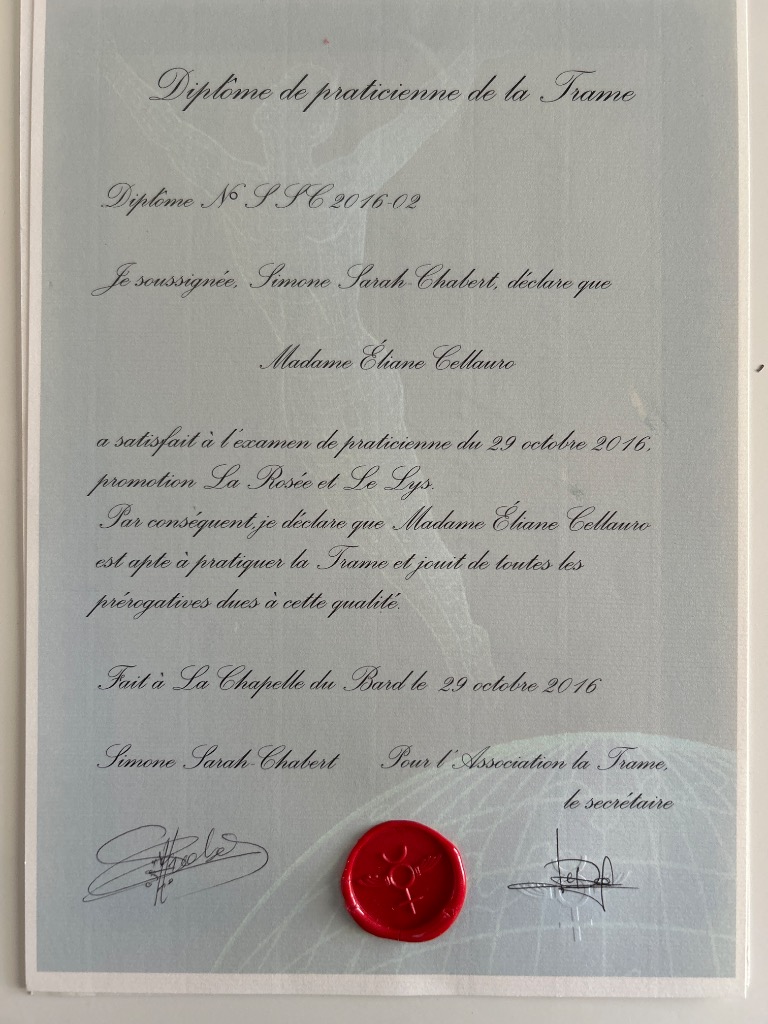 Diplôme de praticienne de la Trame
Diplôme N° SSC 2016-02
Je soussignée, Simone Sarah-Chabert, déclare que
Madame Éliane Cellauro
a satisfait à l'examen de praticienne du 29 octobre 2016,
promotion La Rosée et Le Lys.
Par conséquent, je déclare que Madame Éliane Cellauro
est apte à pratiquer la Trame et jouit de toutes les
prérogatives dues à cette qualité.
Fait à La Chapelle du Bard le 29 octobre 2016
Simone Sarah-Chabert Pour l'Association la Trame,
le secrétaire